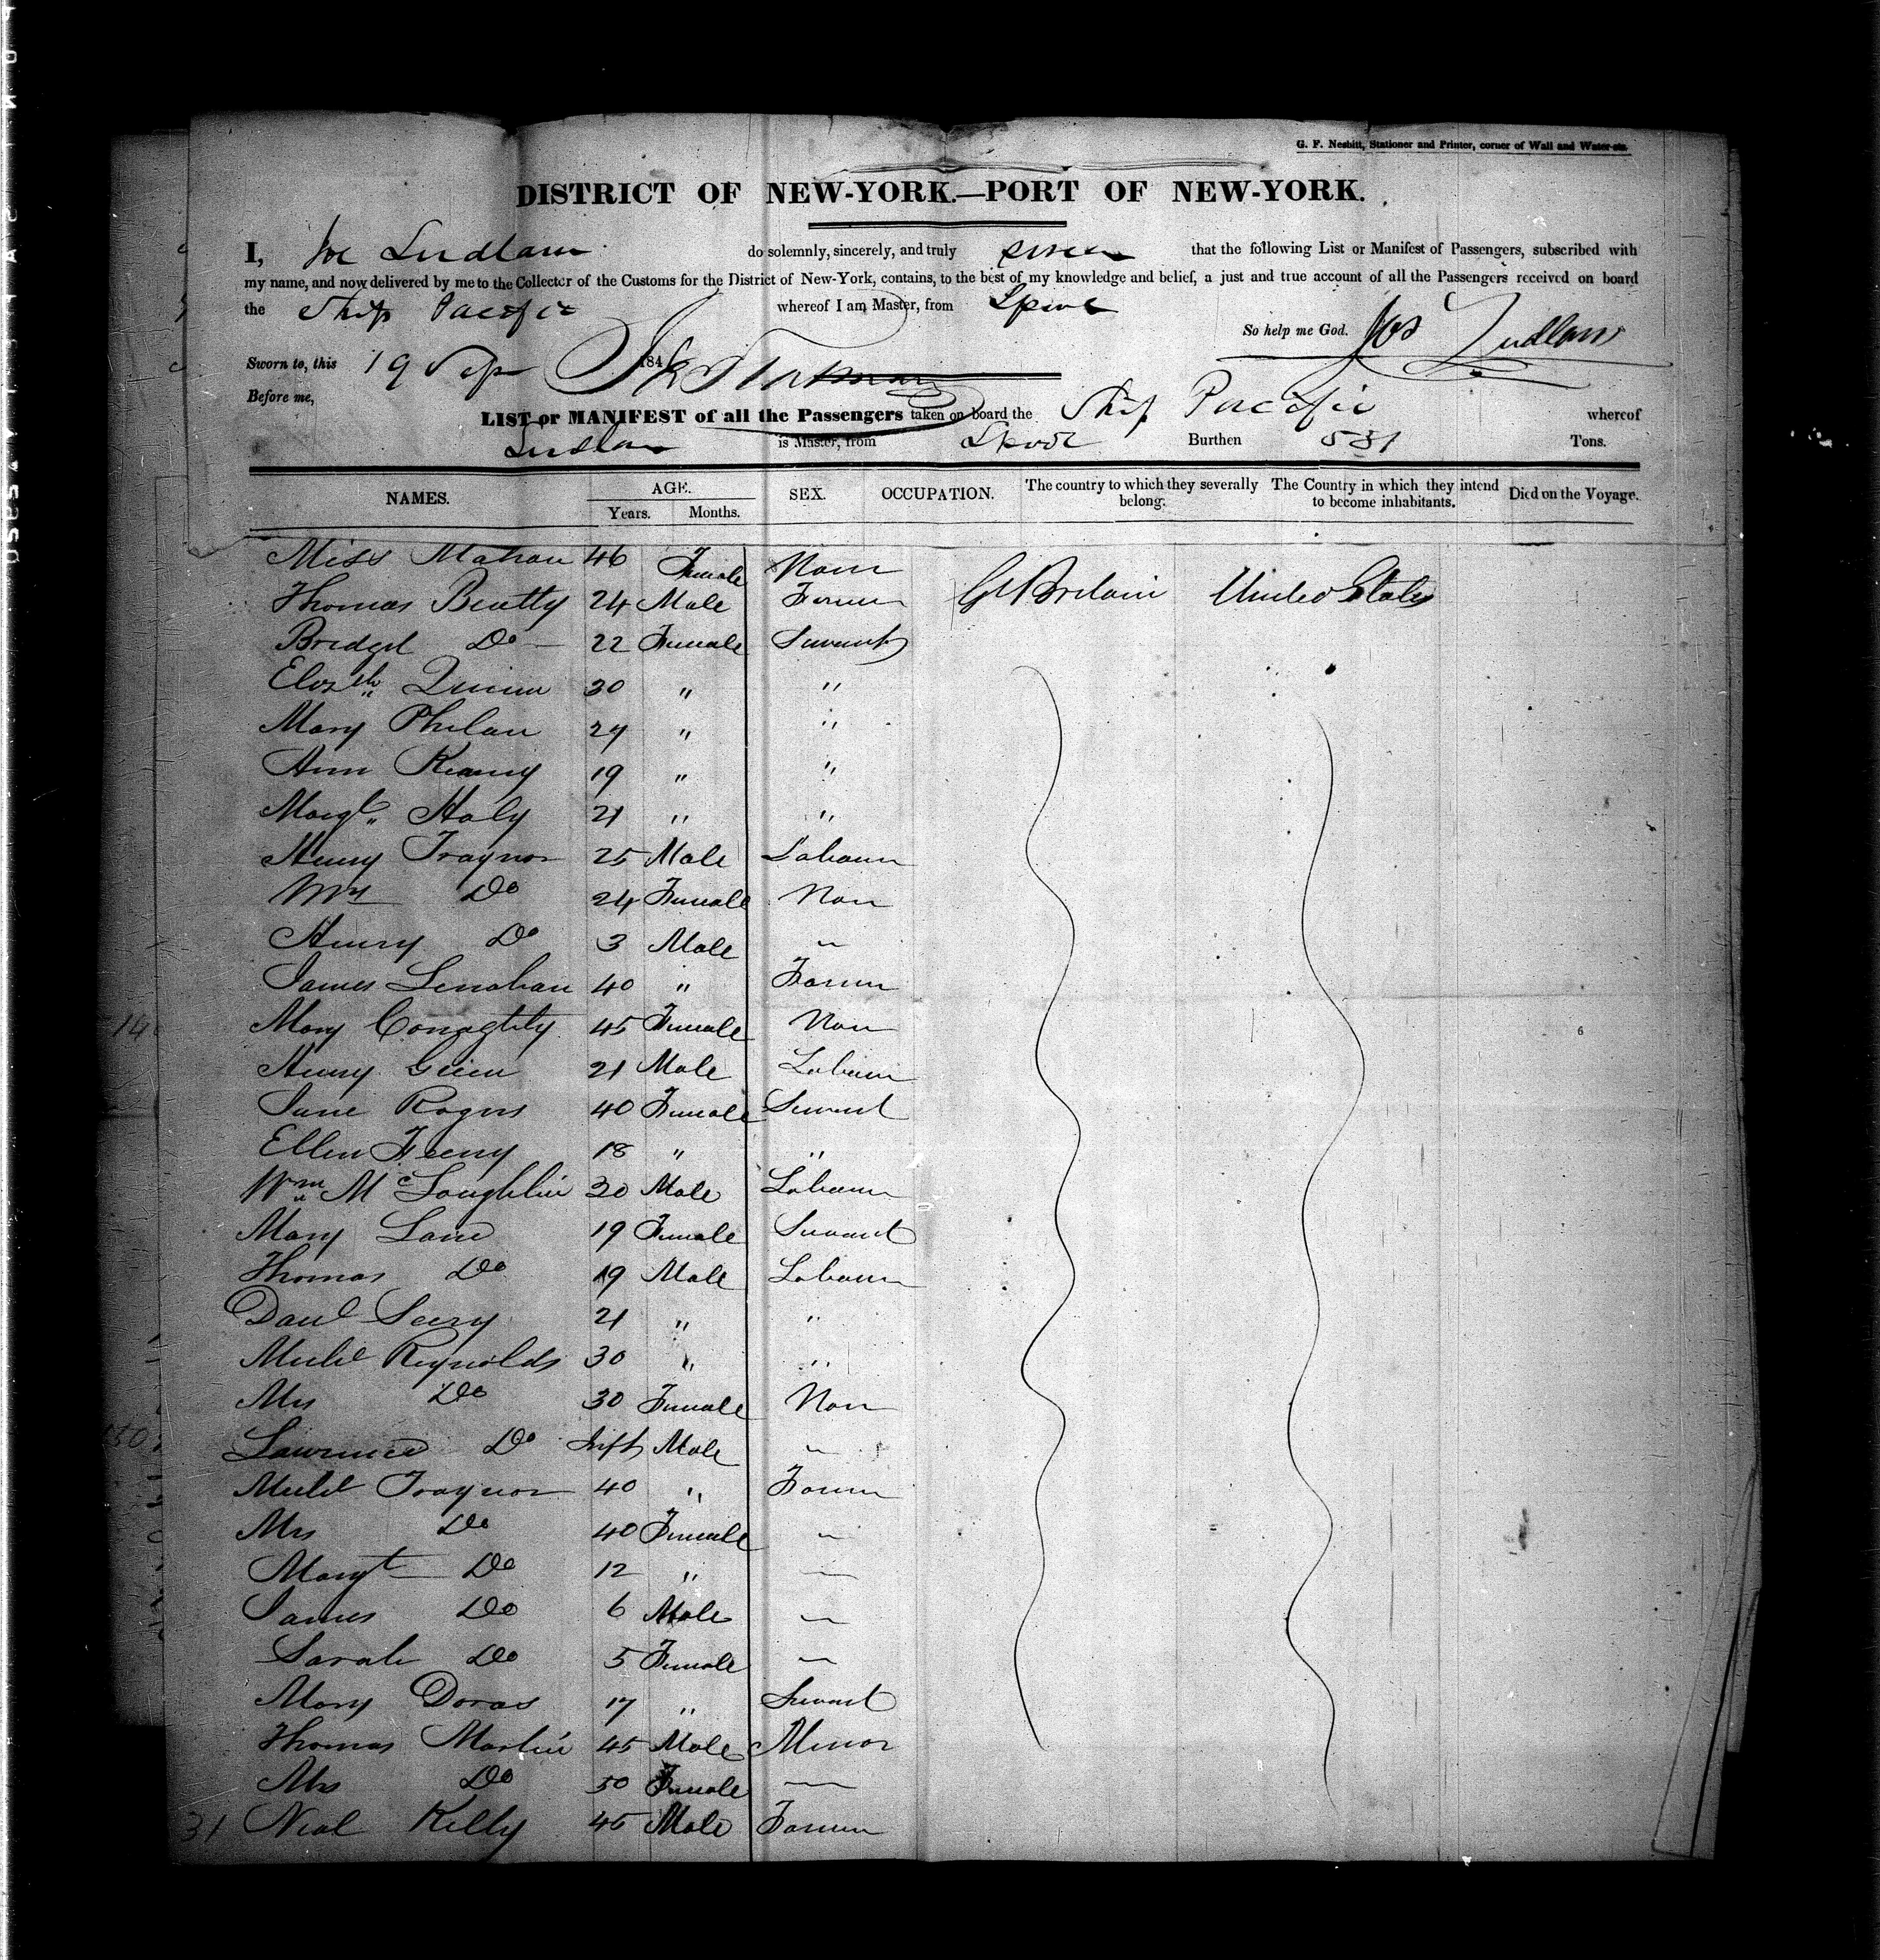 G. F. Nesbitt, Stationer and Printer, corner of Wall and Water-sts.
DISTRICT OF NEW-YORK.—PORT OF NEW-YORK.
I, Jos Ludlam do solemnly, sincerely, and truly swear that the following List or Manifest of Passengers, subscribed with
my name, and now delivered by me to the Collector of the Customs for the District of New-York, contains, to the best of my knowledge and belief, a just and true account of all the Passengers received on board
the Ship Pacific whereof I am Master, from Lpool
So help me God. Jos Ludlam
Sworn to, this 19 Sep 184
Before me,
LIST or MANIFEST of all the Passengers taken on board the Ship Pacific whereof
Ludlam is Master, from Lpool Burthen 531 Tons.
NAMES. AGE. SEX. OCCUPATION. The country to which they severally belong. The Country in which they intend to become inhabitants. Died on the Voyage.
Years. Months.
Miss Mahan 46 Female None
Thomas Beatty 24 Male Farmer Gt Britain United States
Bridget Do 22 Female Servant
Elizth Quinn 30 " "
Mary Phelan 27 " "
Ann Kearny 19 " "
Margt Haly 21 " "
Henry Traynor 25 Male Labourer
Mrs Do 24 Female Non
Henry Do 3 Male "
James Lenahan 40 " Farmer
Mary Conaghty 45 Female Non
Henry Green 21 Male Labourer
Jane Rogers 40 Female Servant
Ellen Feeny 18 " "
Wm McLoughlin 30 Male Labourer
Mary Lane 19 Female Servant
Thomas Do 19 Male Labourer
Danl Seery 21 " "
Michl Reynolds 30 " "
Mrs Do 30 Female Non
Lawrence Do Inft Male "
Michl Traynor 40 " Farmer
Mrs Do 40 Female "
Margt Do 12 " —
James Do 6 Male —
Sarah Do 5 Female —
Mary Doran 17 " Servant
Thomas Martin 45 Male Minor
Mrs Do 50 Female —
31 Neal Kelly 45 Male Farmer